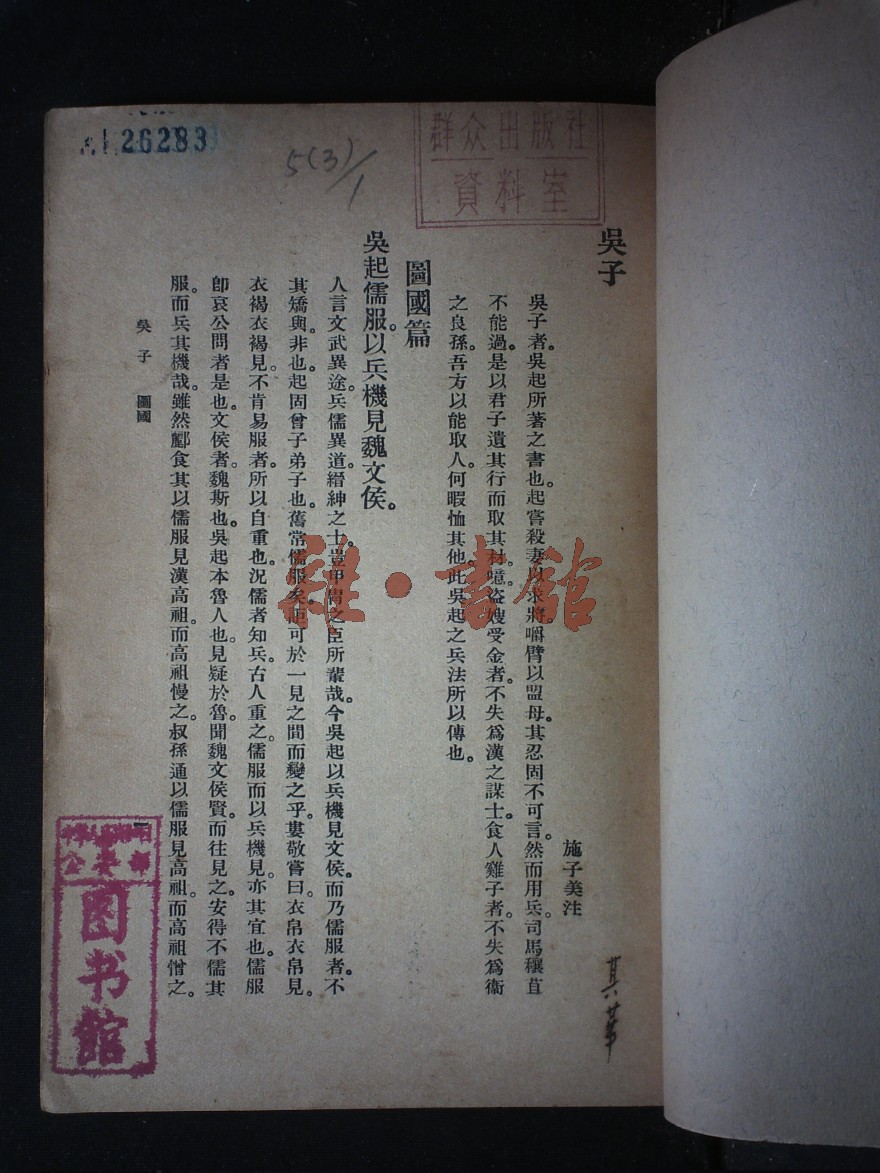 26283
5(3)/1
群众出版社
資料室
吳子
施子美注
吳子者。吳起所著之書也。起嘗殺妻以求將。嚙臂以盟母。其忍固不可言。然而用兵。司馬穰苴
不能過。是以君子遺其行而取其材。噫。盜嫂受金者。不失爲漢之謀士。食人雞子者。不失爲衞
之良孫。吾方以能取人。何暇恤其他。此吳起之兵法所以傳也。
圖國篇
吳起儒服。以兵機見魏文侯。
人言文武異途。兵儒異道。縉紳之士。豈甲冑之臣所輩哉。今吳起以兵機見文侯。而乃儒服者。不
其矯與。非也。起固曾子弟子也。舊常儒服矣。詎可於一見之間而變之乎。婁敬嘗曰。衣帛衣帛見。
衣褐衣褐見。不肯易服者。所以自重也。況儒者知兵。古人重之。儒服而以兵機見。亦其宜也。儒服
卽哀公問者是也。文侯者。魏斯也。吳起本魯人也。見疑於魯。聞魏文侯賢。而往見之。安得不儒其
服。而兵其機哉。雖然酈食其以儒服見漢高祖。而高祖慢之。叔孫通以儒服見高祖。而高祖憎之。
吳子 圖國
一
图书馆
雜·書館